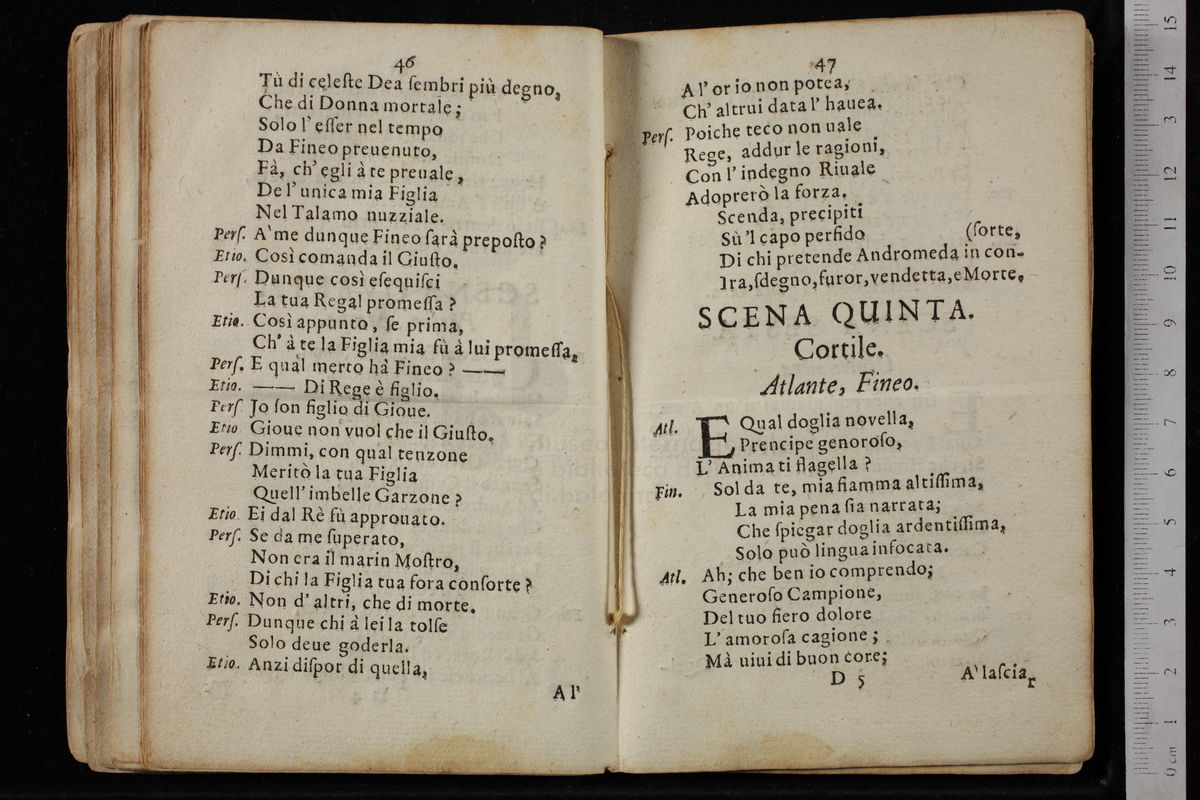 46
Tù di celeſte Dea ſembri più degno,
Che di Donna mortale;
Solo l'eſſer nel tempo
Da Fineo preuenuto,
Fà, ch'egli à te preuale,
De l'unica mia Figlia
Nel Talamo nuzziale.
Perſ. A'me dunque Fineo ſarà prepoſto?
Etio. Così comanda il Giuſto.
Perſ. Dunque così eſequiſci
La tua Regal promeſſa?
Etio. Così appunto, ſe prima,
Ch' à te la Figlia mia fù à lui promeſſa,
Perſ. E qual merto hà Fineo? ——
Etio. —— Di Rege è figlio.
Perſ Jo ſon figlio di Gioue.
Etio Gioue non vuol che il Giuſto.
Perſ. Dimmi, con qual tenzone
Meritò la tua Figlia
Quell' imbelle Garzone?
Etio Ei dal Rè fù approuato.
Perſ. Se da me ſuperato,
Non era il marin Moſtro,
Di chi la Figlia tua fora conſorte?
Etio. Non d' altri, che di morte.
Perſ. Dunque chi à lei la tolſe
Solo deue goderla.
Etio. Anzi diſpor di quella,
A l'
47
A l' or io non potea,
Ch' altrui data l' hauea.
Perſ. Poiche teco non uale
Rege, addur le ragioni,
Con l' indegno Riuale
Adoprerò la forza.
Scenda, precipiti
Sù 'l capo perfido (ſorte,
Di chi pretende Andromeda in con-
Ira, ſdegno, furor, vendetta, e Morte.
SCENA QUINTA.
Cortile.
Atlante, Fineo.
Atl. E Qual doglia novella,
Prencipe genoroſo,
L' Anima ti flagella?
Fin. Sol da te, mia fiamma altiſſima,
La mia pena ſia narrata;
Che ſpiegar doglia ardentiſſima,
Solo può lingua infocata.
Atl. Ah; che ben io comprendo;
Generoſo Campione,
Del tuo fiero dolore
L' amoroſa cagione;
Mà uiui di buon core;
D 5 A' laſciar
15
14
3
12
11
10
9
8
7
6
5
4
3
2
1
0 cm